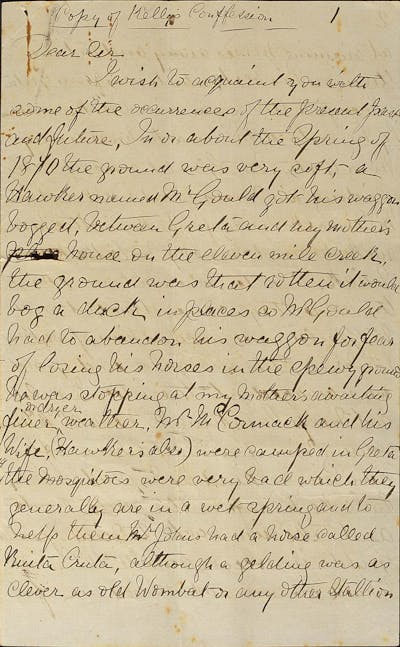 Copy of Kellys Confession 1
Dear Sir
I wish to acquaint you with
some of the occurrences of the present past
and future, In or about the Spring of
1870 the ground was very soft, a
Hawker named Mr Gould got his waggon
bogged, between Greta and my mother's
house on the eleven mile creek,
the ground was that rotten it would
bog a duck in places so Mr Gould
had to abandon his waggon for fear
of losing his horses in the spewy ground
he was stopping at my mother's awaiting
finer or dryer weather, Mr McCormack and his
Wife, (Hawkers also) were camped in Greta
the Mosquitoes were very bad which they
generally are in a wet spring and to
help them Mr Johns had a horse called
Ruita Cruta, although a gelding was as
clever as old Wombat or any other Stallion